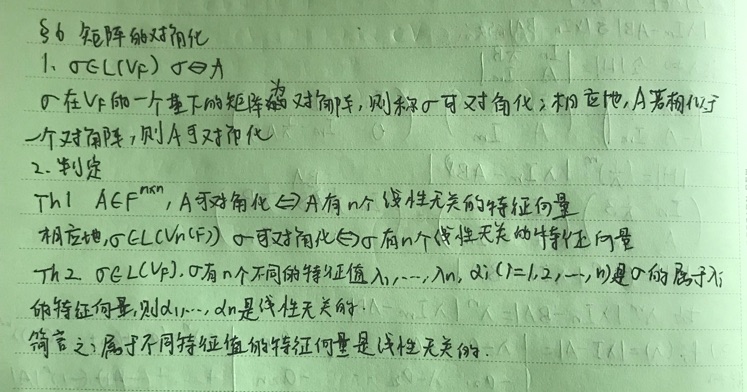 §6 矩阵的对角化
1、σ∈L(V_F) σ⇔A
σ在V_F的一个基下的矩阵为对角阵,则称σ可对角化;相应地,A若相似于
一个对角阵,则A可对角化
2、判定
Th1 A∈F^{n×n}, A可对角化⇔A有n个线性无关的特征向量
相应地,σ∈L(V_n(F)) σ可对角化⇔σ有n个线性无关的特征向量
Th2 σ∈L(V_F).σ有n个不同的特征值λ_1,…,λ_n, α_i(i=1,2,…,n)是σ的属于λ_i
的特征向量,则α_1,…,α_n是线性无关的.
简言之:属于不同特征值的特征向量是线性无关的.